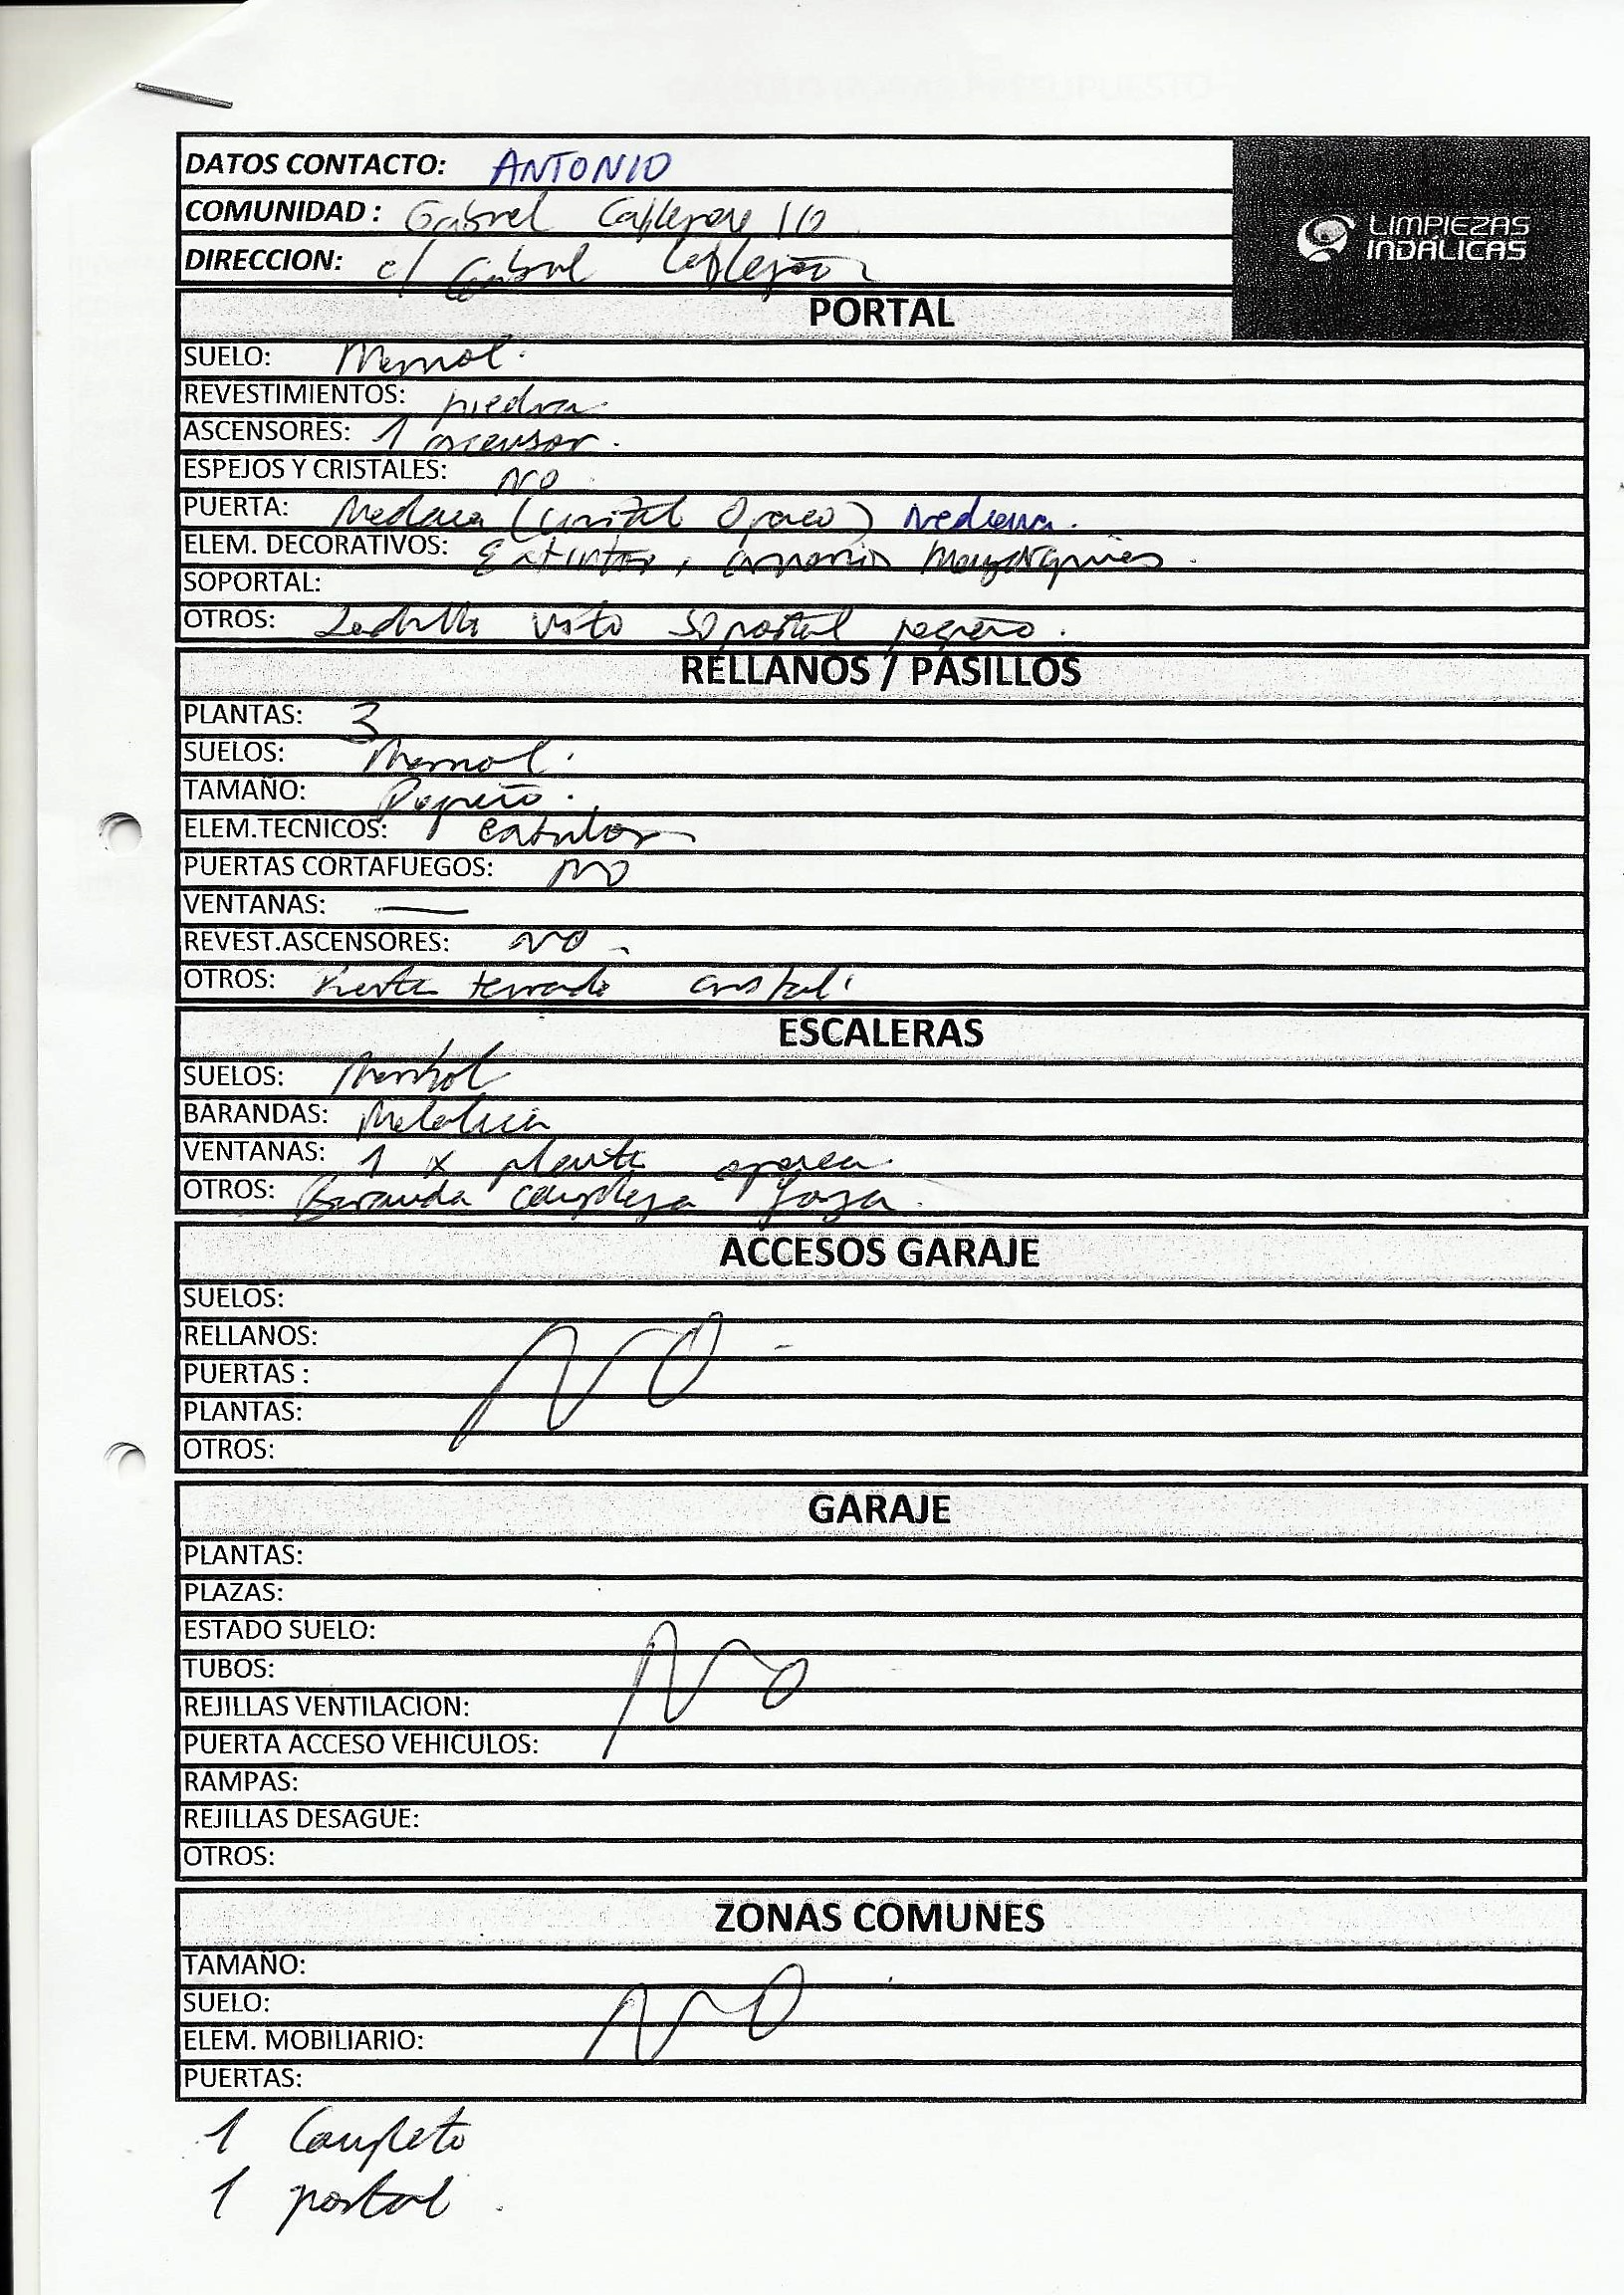 DATOS CONTACTO: ANTONIO
COMUNIDAD: Gabriel Callejon 10
LIMPIEZAS
INDÁLICAS
DIRECCION: c/ Gabriel Callejon
PORTAL
SUELO: Marmol.
REVESTIMIENTOS: piedra.
ASCENSORES: 1 ascensor.
ESPEJOS Y CRISTALES: NO.
PUERTA: (cristal Opaco) Mediana.
ELEM. DECORATIVOS: Extintor,
SOPORTAL:
OTROS: Ladrillo visto soportal pequeño.
RELLANOS / PASILLOS
PLANTAS: 3
SUELOS: Marmol.
TAMAÑO: Pequeño.
ELEM.TECNICOS:
PUERTAS CORTAFUEGOS: NO
VENTANAS: —
REVEST.ASCENSORES: NO -
OTROS: Puerta terrado cristal.
ESCALERAS
SUELOS: Marmol
BARANDAS: Metalica
VENTANAS: 1 x planta opaca.
OTROS: Baranda compleja
ACCESOS GARAJE
SUELOS:
RELLANOS: NO -
PUERTAS :
PLANTAS:
OTROS:
GARAJE
PLANTAS:
PLAZAS:
ESTADO SUELO:
TUBOS: NO
REJILLAS VENTILACION:
PUERTA ACCESO VEHICULOS:
RAMPAS:
REJILLAS DESAGUE:
OTROS:
ZONAS COMUNES
TAMAÑO:
SUELO: NO
ELEM. MOBILIARIO:
PUERTAS:
1 Completo
1 portal.